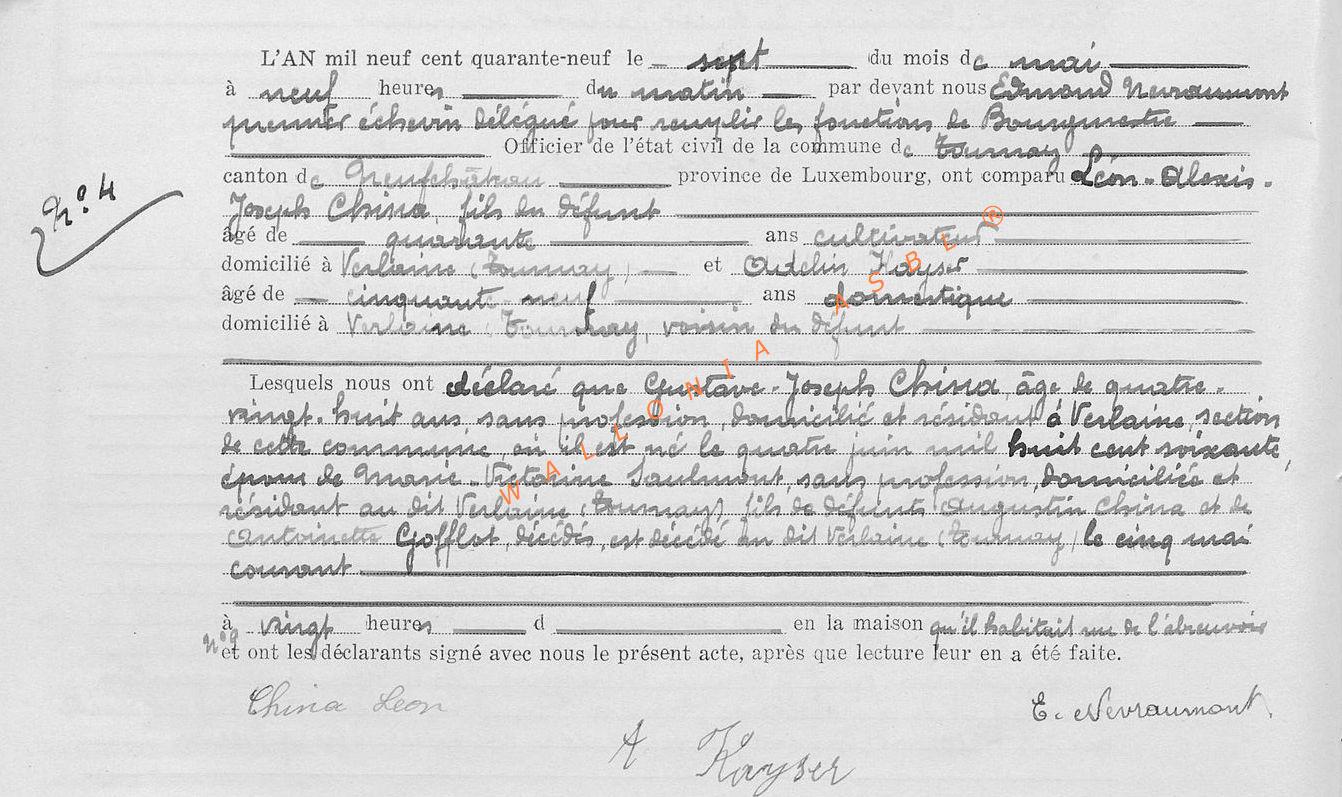 L'AN mil neuf cent quarante-neuf le sept du mois de mai
à neuf heures du matin par devant nous Edmond Nevraumont
premier échevin délégué pour remplir les fonctions de Bourgmestre
Officier de l'état civil de la commune de Tournay
canton de Neufchâteau province de Luxembourg, ont comparu Léon-Alexis-
N° 4
Joseph China, fils du défunt
âgé de quarante ans cultivateur
domicilié à Verlaine (Tournay) et Odelin Kayser
âgé de cinquante-neuf ans domestique
domicilié à Verlaine (Tournay, voisin du défunt
Lesquels nous ont déclaré que Gustave-Joseph China, âgé de quatre-
vingt-huit ans, sans profession, domicilié et résidant à Verlaine, section
de cette commune, où il est né le quatre juin mil huit cent soixante,
époux de Marie-Victorine Saulmont, sans profession, domiciliée et
résidant au dit Verlaine (Tournay) fils de défunts Augustin China et de
Antoinette Gofflot, décédés, est décédé au dit Verlaine (Tournay) le cinq mai
courant
à vingt heures d en la maison qu'il habitait rue de l'abreuvoir
n° 9
et ont les déclarants signé avec nous le présent acte, après que lecture leur en a été faite.
China Leon
E. Nevraumont
A Kayser
WALLONIA ASBL ®